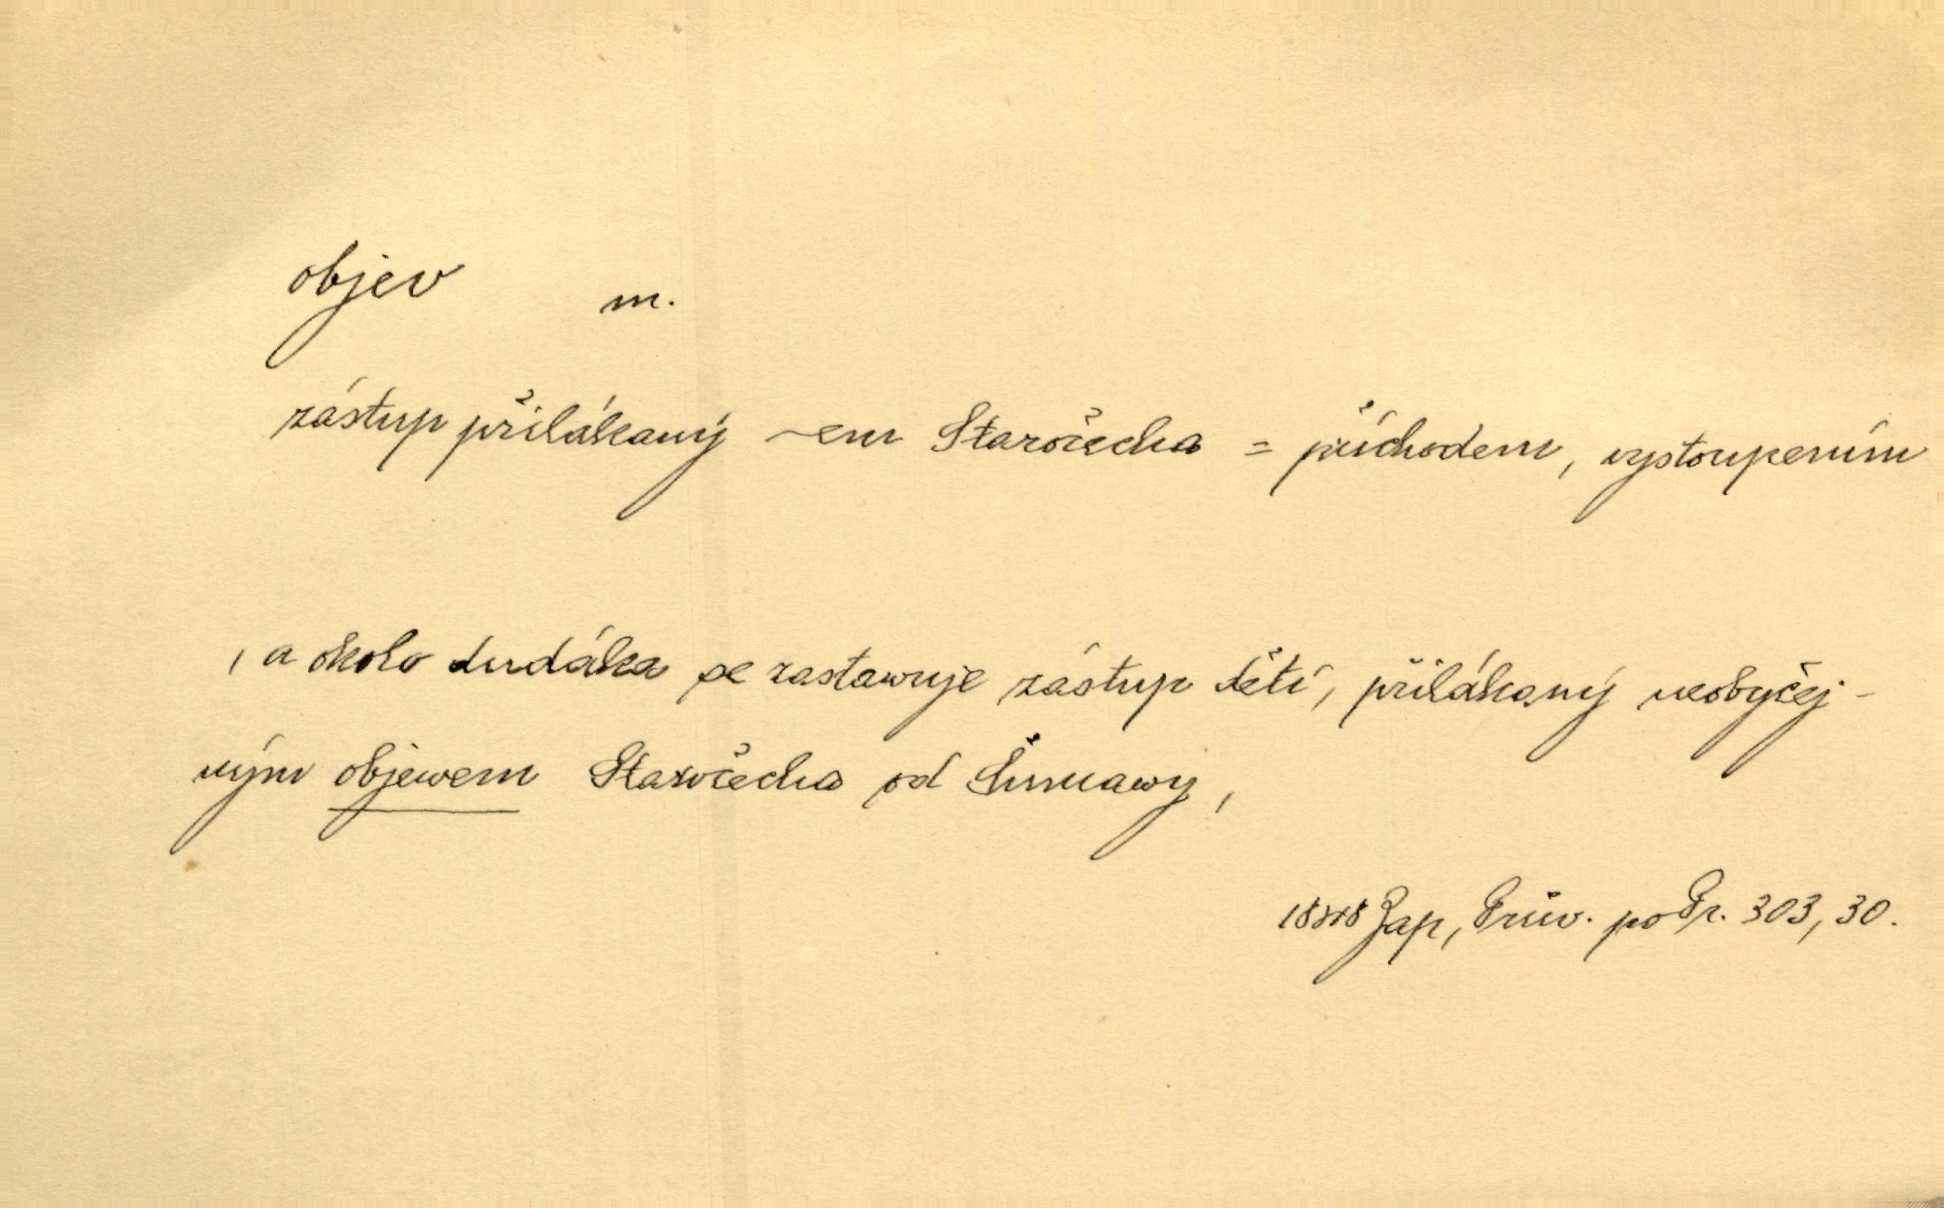 objev m.
zástup přilákaný ~em Staročecha = příchodem, vystoupením
, a okolo dudáka se zastawuje zástup dětí, přilákaný neobyčej-
ným objewem Staročecha od Šumawy,
Zap, Průw. po Pr. 303, 30.